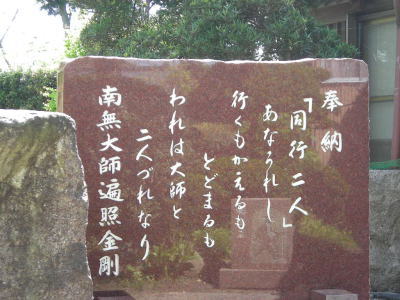 奉納
「同行二人」
あなうれし
行くもかえるも
とどまるも
われは大師と
二人づれなり
南無大師遍照金剛